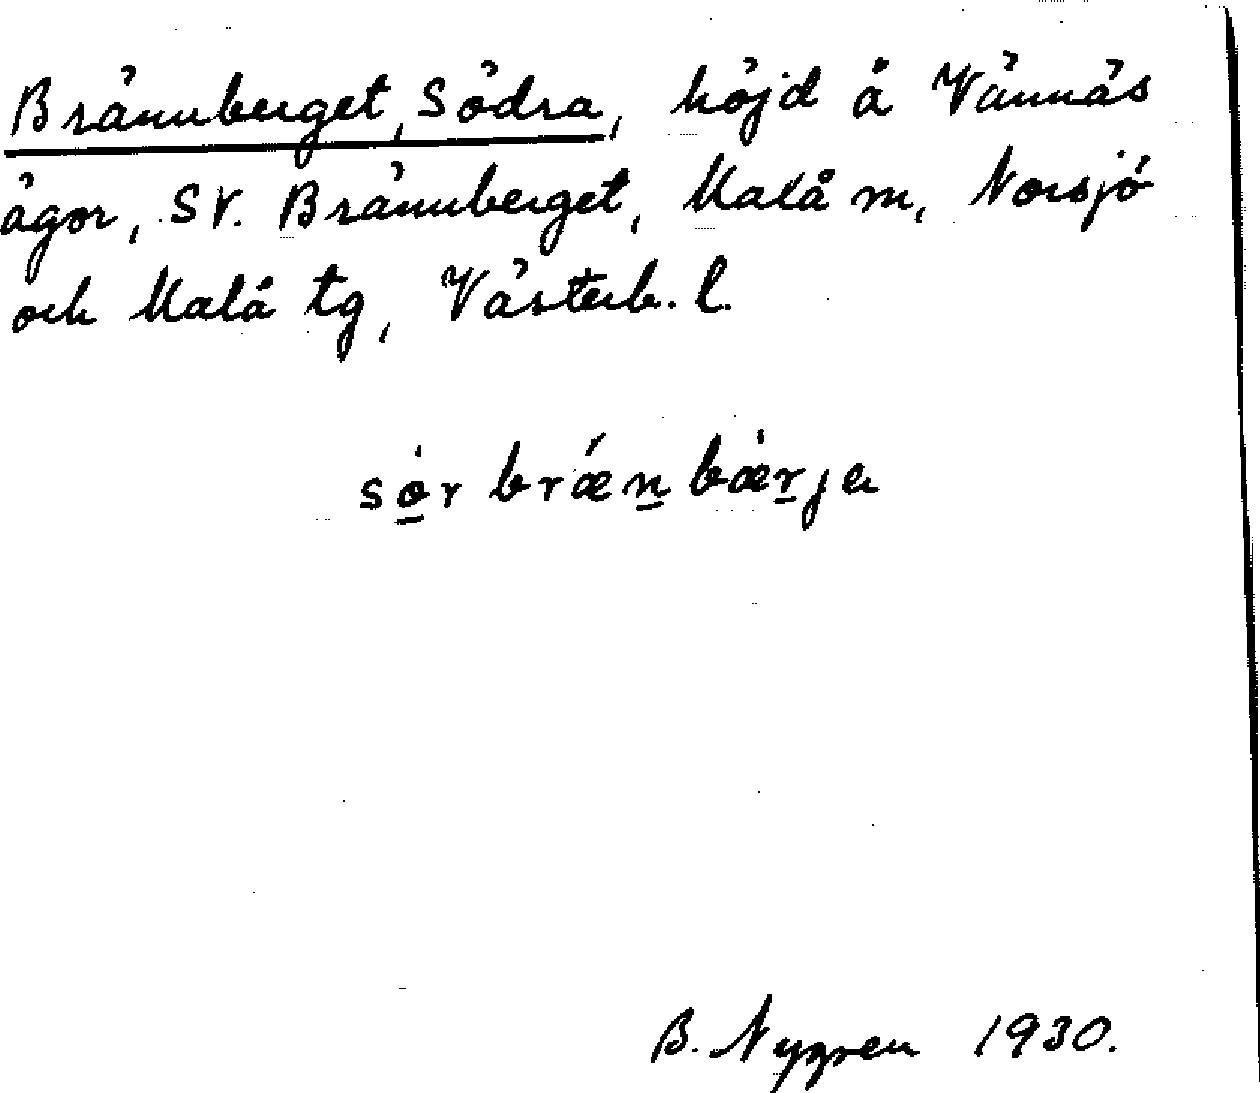 Brännberget, Södra, höjd å Vännäs
ägor, SV. Brännberget, Malå sn, Norsjö
och Malå tg, Västerb. l.
sǿr brǽn bærja
B. Nygren 1930.